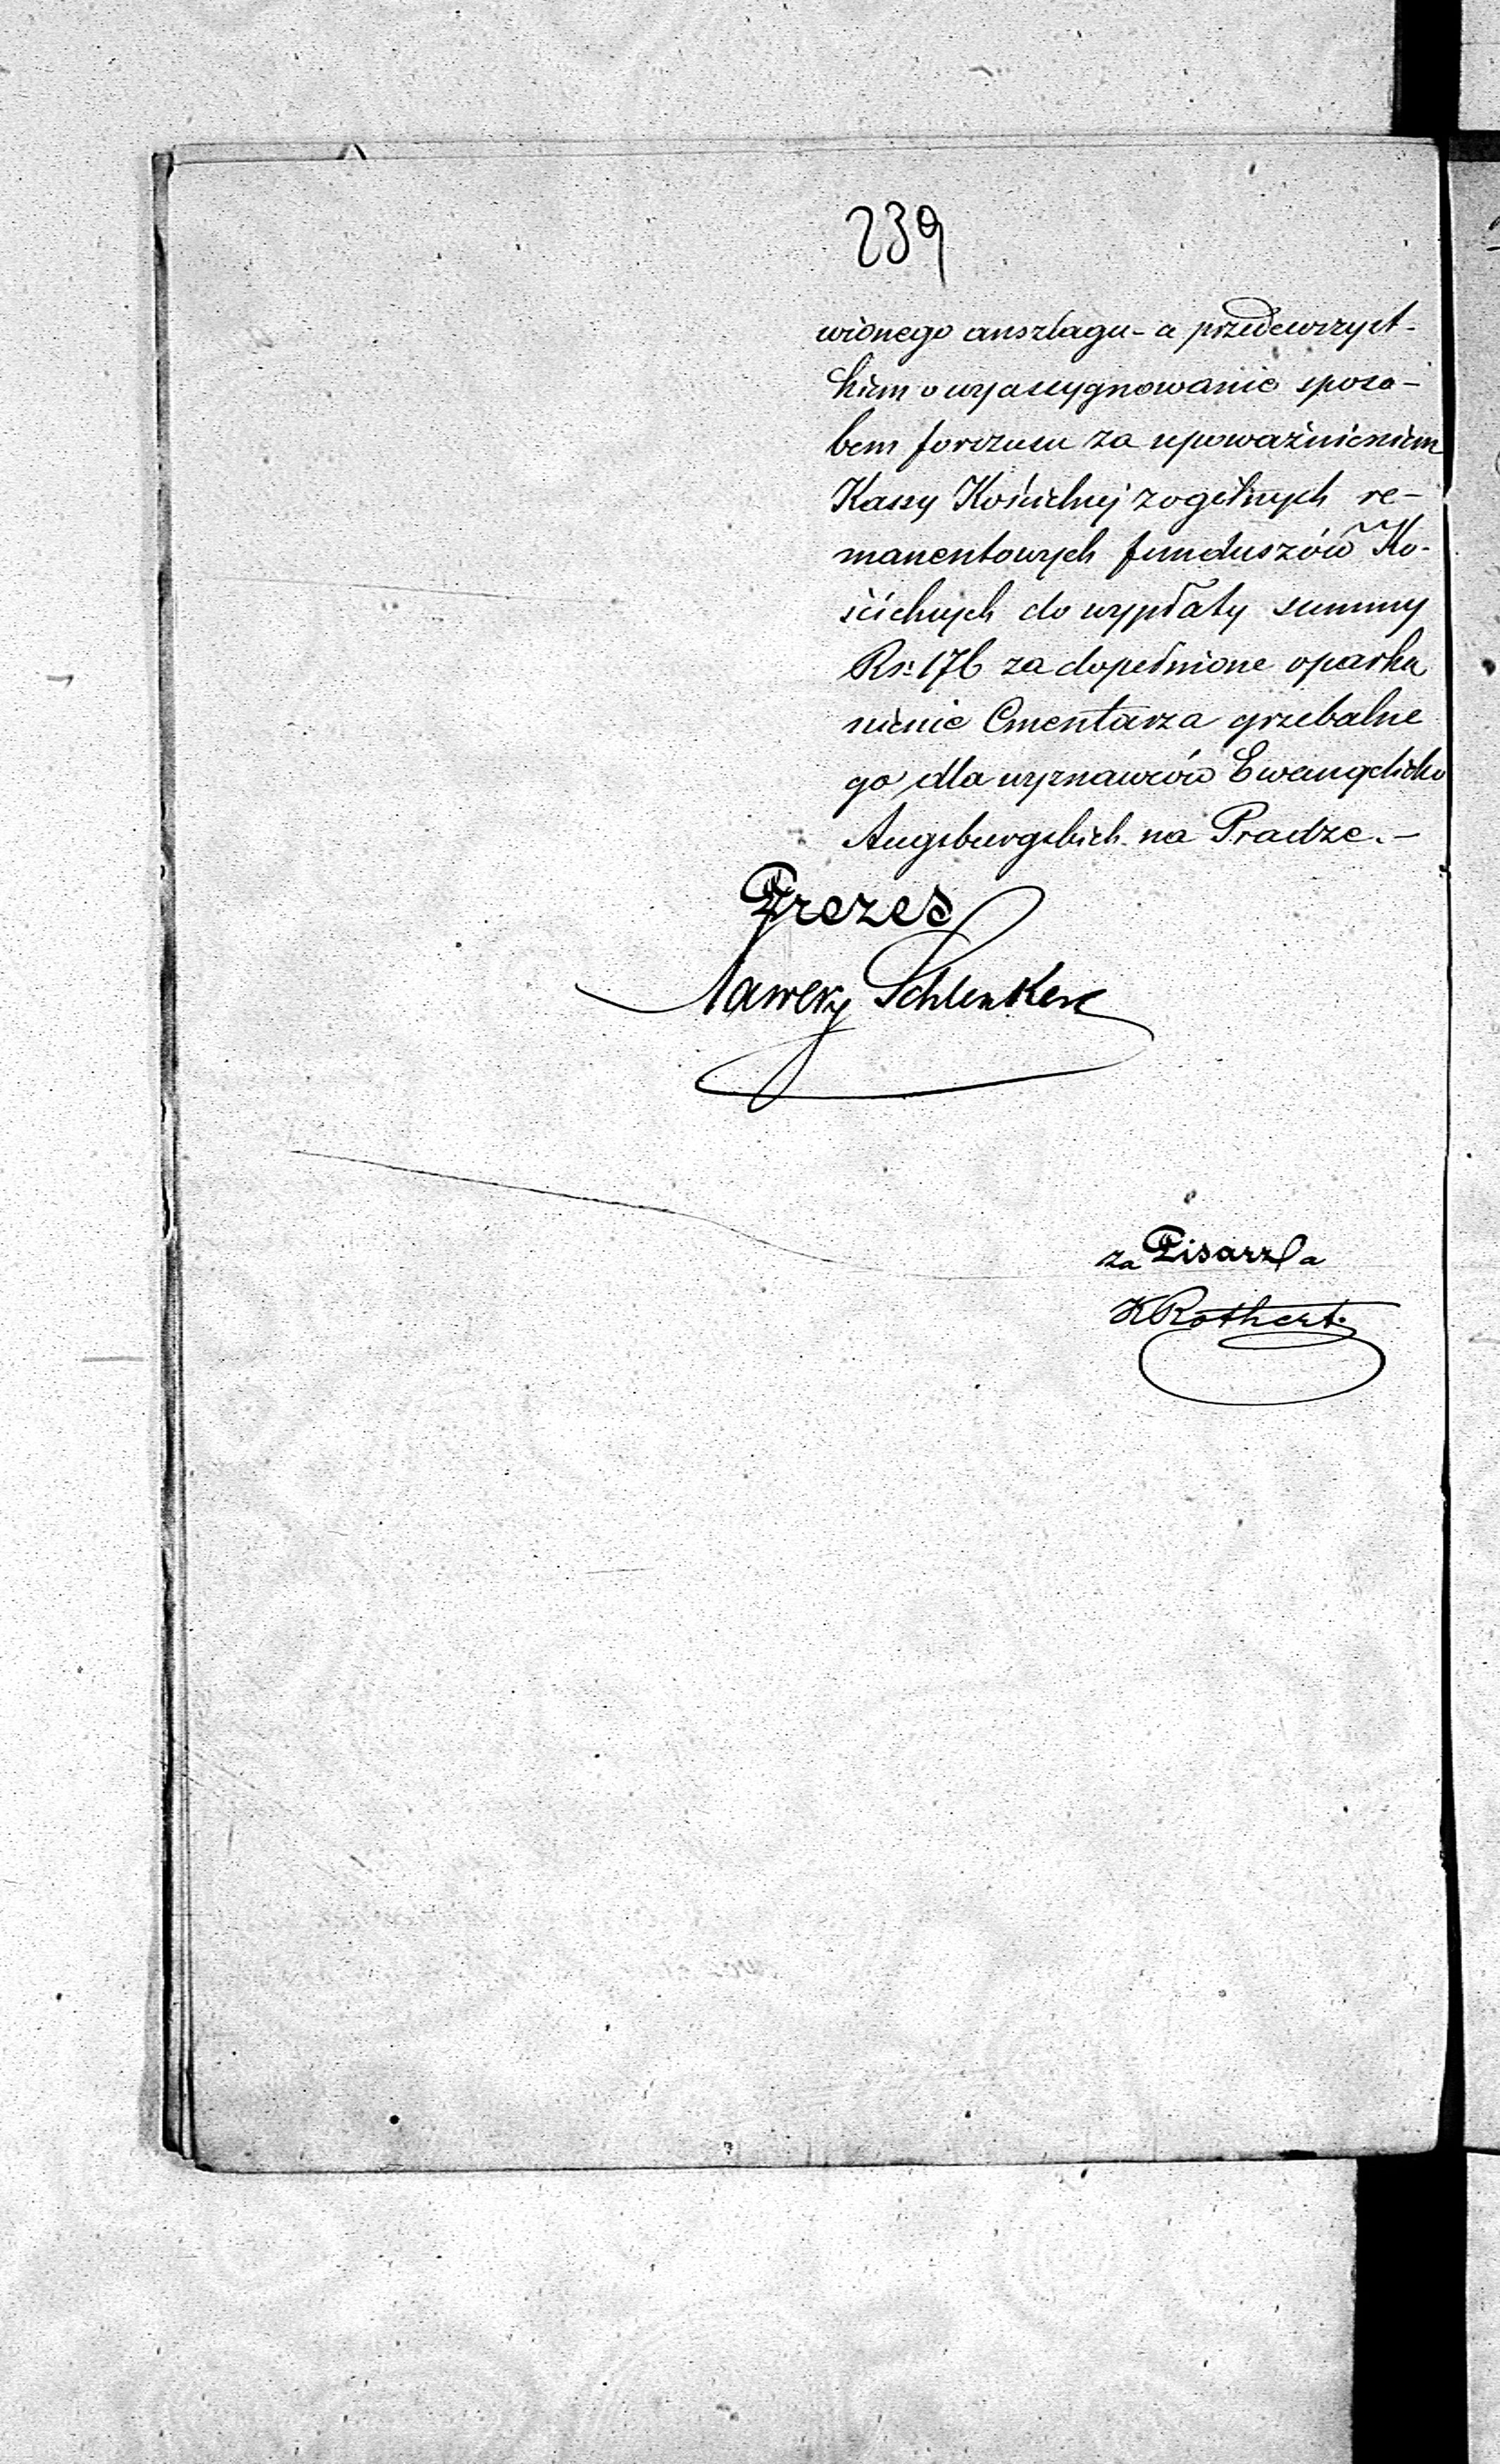 239
wionego anszlagu - a przedewszyst-
kiem o wyassygnowanie sposo-
bem forszusu za upoważnieniem
Kassy Kościelnej z ogólnych re-
manentowych funduszów Ko-
ścielnych do wypłaty summy
Rs: 176 za dopełnione oparka
nienie Cmentarza grzebalne
go dla wyznawców Ewangelicko
Augsburgskich na Pradze. -
Prezes
Xawery Schlenker
za Pisarza
KRothert.